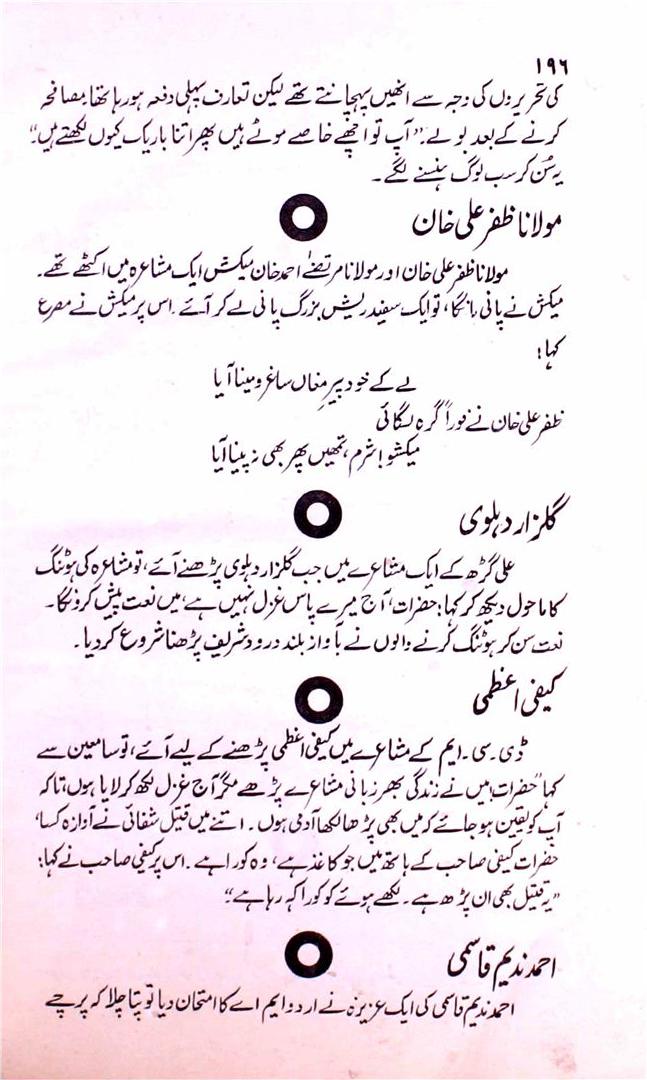 ۱۹۶
کی تحریروں کی وجہ سے انھیں پہچانتے تھے لیکن تعارف پہلی دفعہ ہو رہا تھا۔ مصافحہ
کرنے کے بعد بولے۔ "آپ تو اچھے خاصے موٹے ہیں پھر اتنا باریک کیوں لکھتے ہیں۔"
یہ سُن کر سب لوگ ہنسنے لگے۔
مولانا ظفر علی خان
مولانا ظفر علی خان اور مولانا مرتضےٰ احمد خان میکش ایک مشاعرہ میں اکٹھے تھے۔
میکش نے پانی مانگا، تو ایک سفید ریش بزرگ پانی لے کر آئے۔ اس پر میکش نے مصرع
کہا؛
لے کے خود پیرِ مغاں ساغر و مینا آیا
ظفر علی خان نے فوراً گرہ لگائی
میکشو! شرم، تمھیں پھر بھی نہ پینا آیا
گلزار دہلوی
علی گڑھ کے ایک مشاعرے میں جب گلزار دہلوی پڑھنے آئے، تو مشاعرہ کی ہوٹنگ
کا ماحول دیکھ کر کہا: حضرات، آج میرے پاس غزل نہیں ہے، میں نعت پیش کرونگا۔
نعت سن کر ہوٹنگ کرنے والوں نے بآواز بلند درود شریف پڑھنا شروع کر دیا۔
کیفی اعظمی
ڈی۔ سی۔ ایم کے مشاعرے میں کیفی اعظمی پڑھنے کے لیے آئے، تو سامعین سے
کہا "حضرات! میں نے زندگی بھر زبانی مشاعرے پڑھے مگر آج غزل لکھ کر لایا ہوں، تاکہ
آپ کو یقین ہو جائے کہ میں بھی پڑھا لکھا آدمی ہوں۔ اتنے میں قتیل شفائی نے آوازہ کسا،
حضرات کیفی صاحب کے ہاتھ میں جو کاغذ ہے، وہ کورا ہے۔ اس پر کیفی صاحب نے کہا:
"یہ قتیل بھی ان پڑھ ہے۔ لکھے ہوئے کو کورا کہہ رہا ہے۔"
احمد ندیم قاسمی
احمد ندیم قاسمی کی ایک عزیزہ نے اردو ایم اے کا امتحان دیا تو پتا چلا کہ پرچے